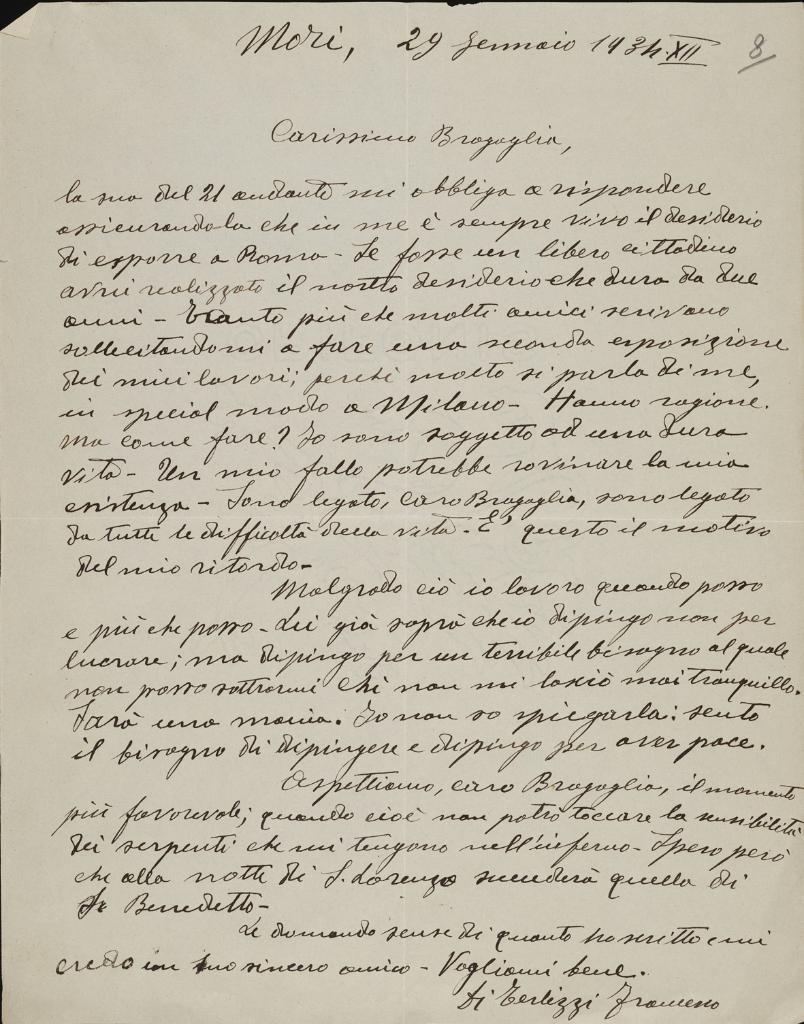 Mori, 29 Gennaio 1934.XII
8
Carissimo Bragaglia,
la sua del 21 andante mi obbliga a rispondere
assicurandola che in me è sempre vivo il desiderio
di esporre a Roma - Se fosse un libero cittadino
avrei realizzato il nostro desiderio che dura da due
anni - Tanto più che molti amici scrivano
sollecitandomi a fare una seconda esposizione
dei miei lavori; perché molto si parla di me,
in special modo a Milano - Hanno ragione.
Ma come fare? Io sono soggetto ad una dura
vita - Un mio fallo potrebbe rovinare la mia
esistenza - Sono legato, caro Bragaglia, sono legato
da tutte le difficoltà della vita - E' questo il motivo
del mio ritardo -
Malgrado ciò io lavoro quando posso
e più che posso - Lei già saprà che io dipingo non per
lucrare; ma dipingo per un terribile bisogno al quale
non posso sottrarmi chi non mi lascia mai tranquillo.
Sarà una mania. Io non so spiegarla: sento
il bisogno di dipingere e dipingo per aver pace.
Aspettiamo, caro Bragaglia, il momento
più favorevole; quando cioè non potrò toccare la sensibilità
dei serpenti che mi tengono nell'inferno - Spero però
che alla notte di S. Lorenzo succederà quella di
S. Benedetto -
Le domando scuse di quanto ho scritto e mi
credo un suo sincero amico - Vogliami bene.
Di Terlizzi Francesco